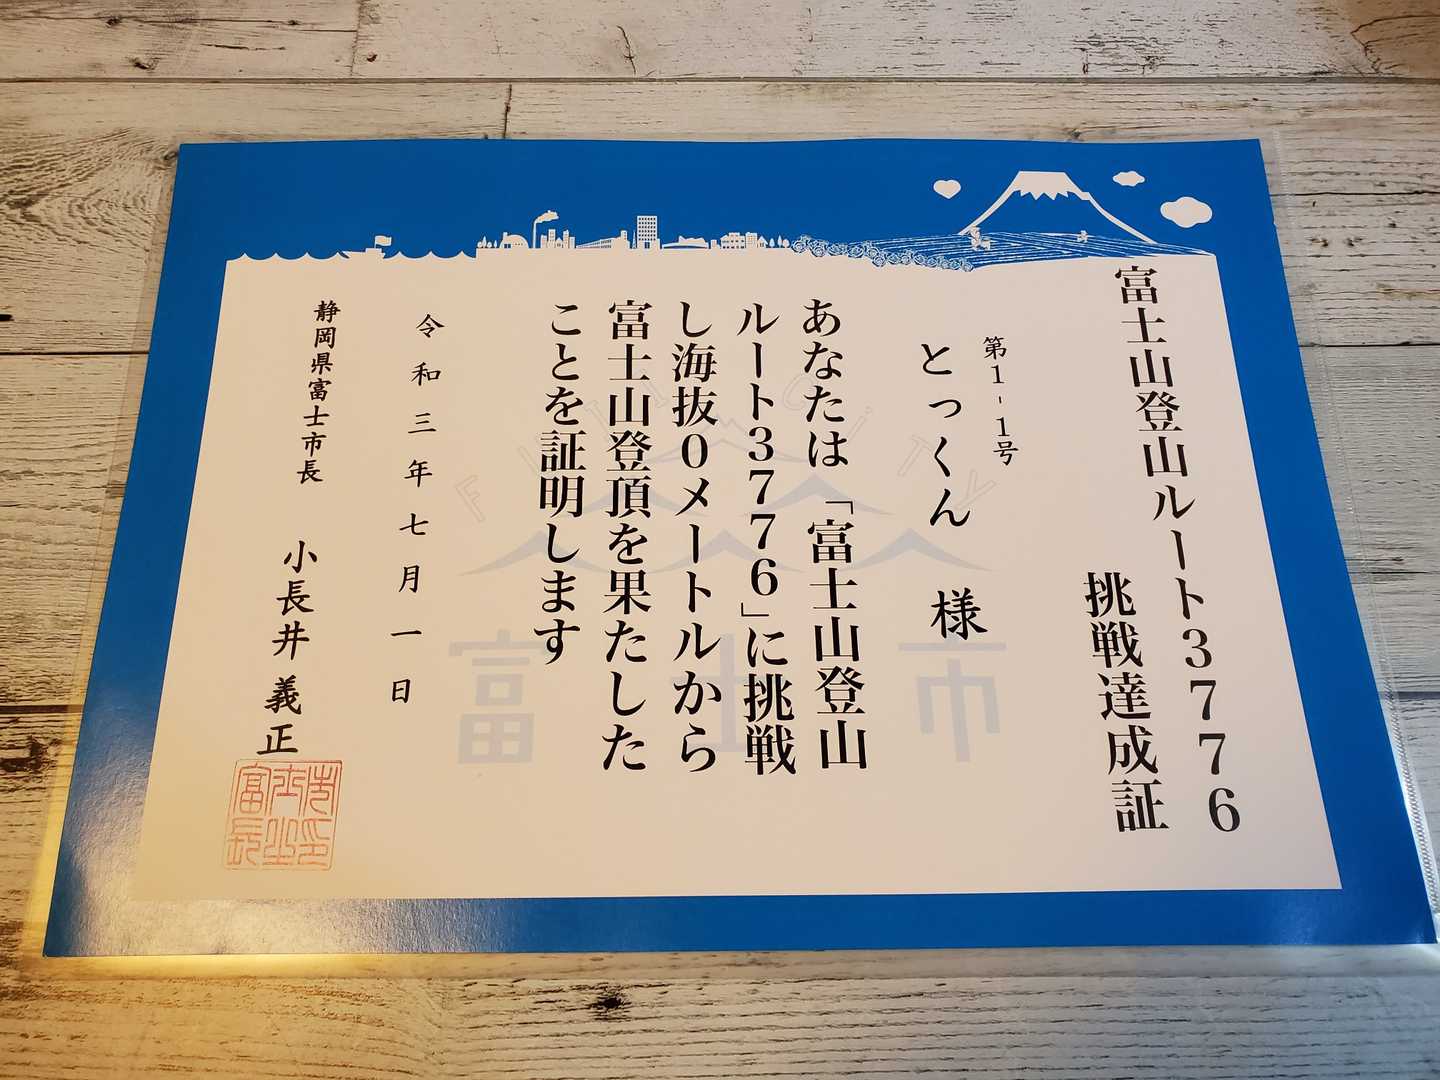 富士山登山ルート3776
挑戦達成証
第1-1号
とっくん 様
あなたは「富士山登山
ルート3776」に挑戦
し海抜0メートルから
富士山登頂を果たした
ことを証明します
令和三年七月一日
静岡県富士市長 小長井 義正
FUJI CITY
富士市